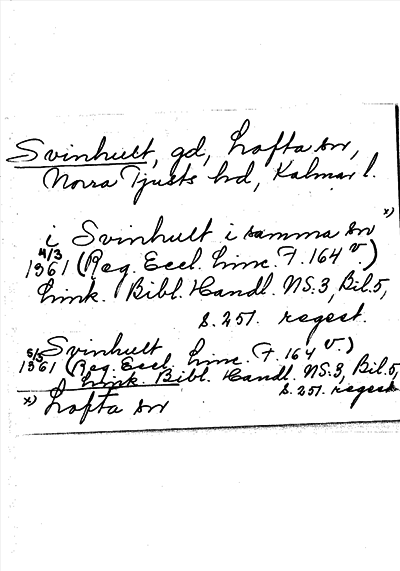 Svinhult, gd, Lofta sn,
Norra Tjusts hd, Kalmar l.
i Svinhult i samma sn x)
4/3
1361 (Reg. Eccl. Linc. F. 164 v.)
Link. Bibl. Handl. NS:3, Bil. 5,
s. 251. regest.
Svinhult
5/5
1361 (Reg. Eccl. Linc. F. 164 v.)
Link. Bibl. Handl. NS:3, Bil. 5,
s. 251. regest
x) Lofta sn